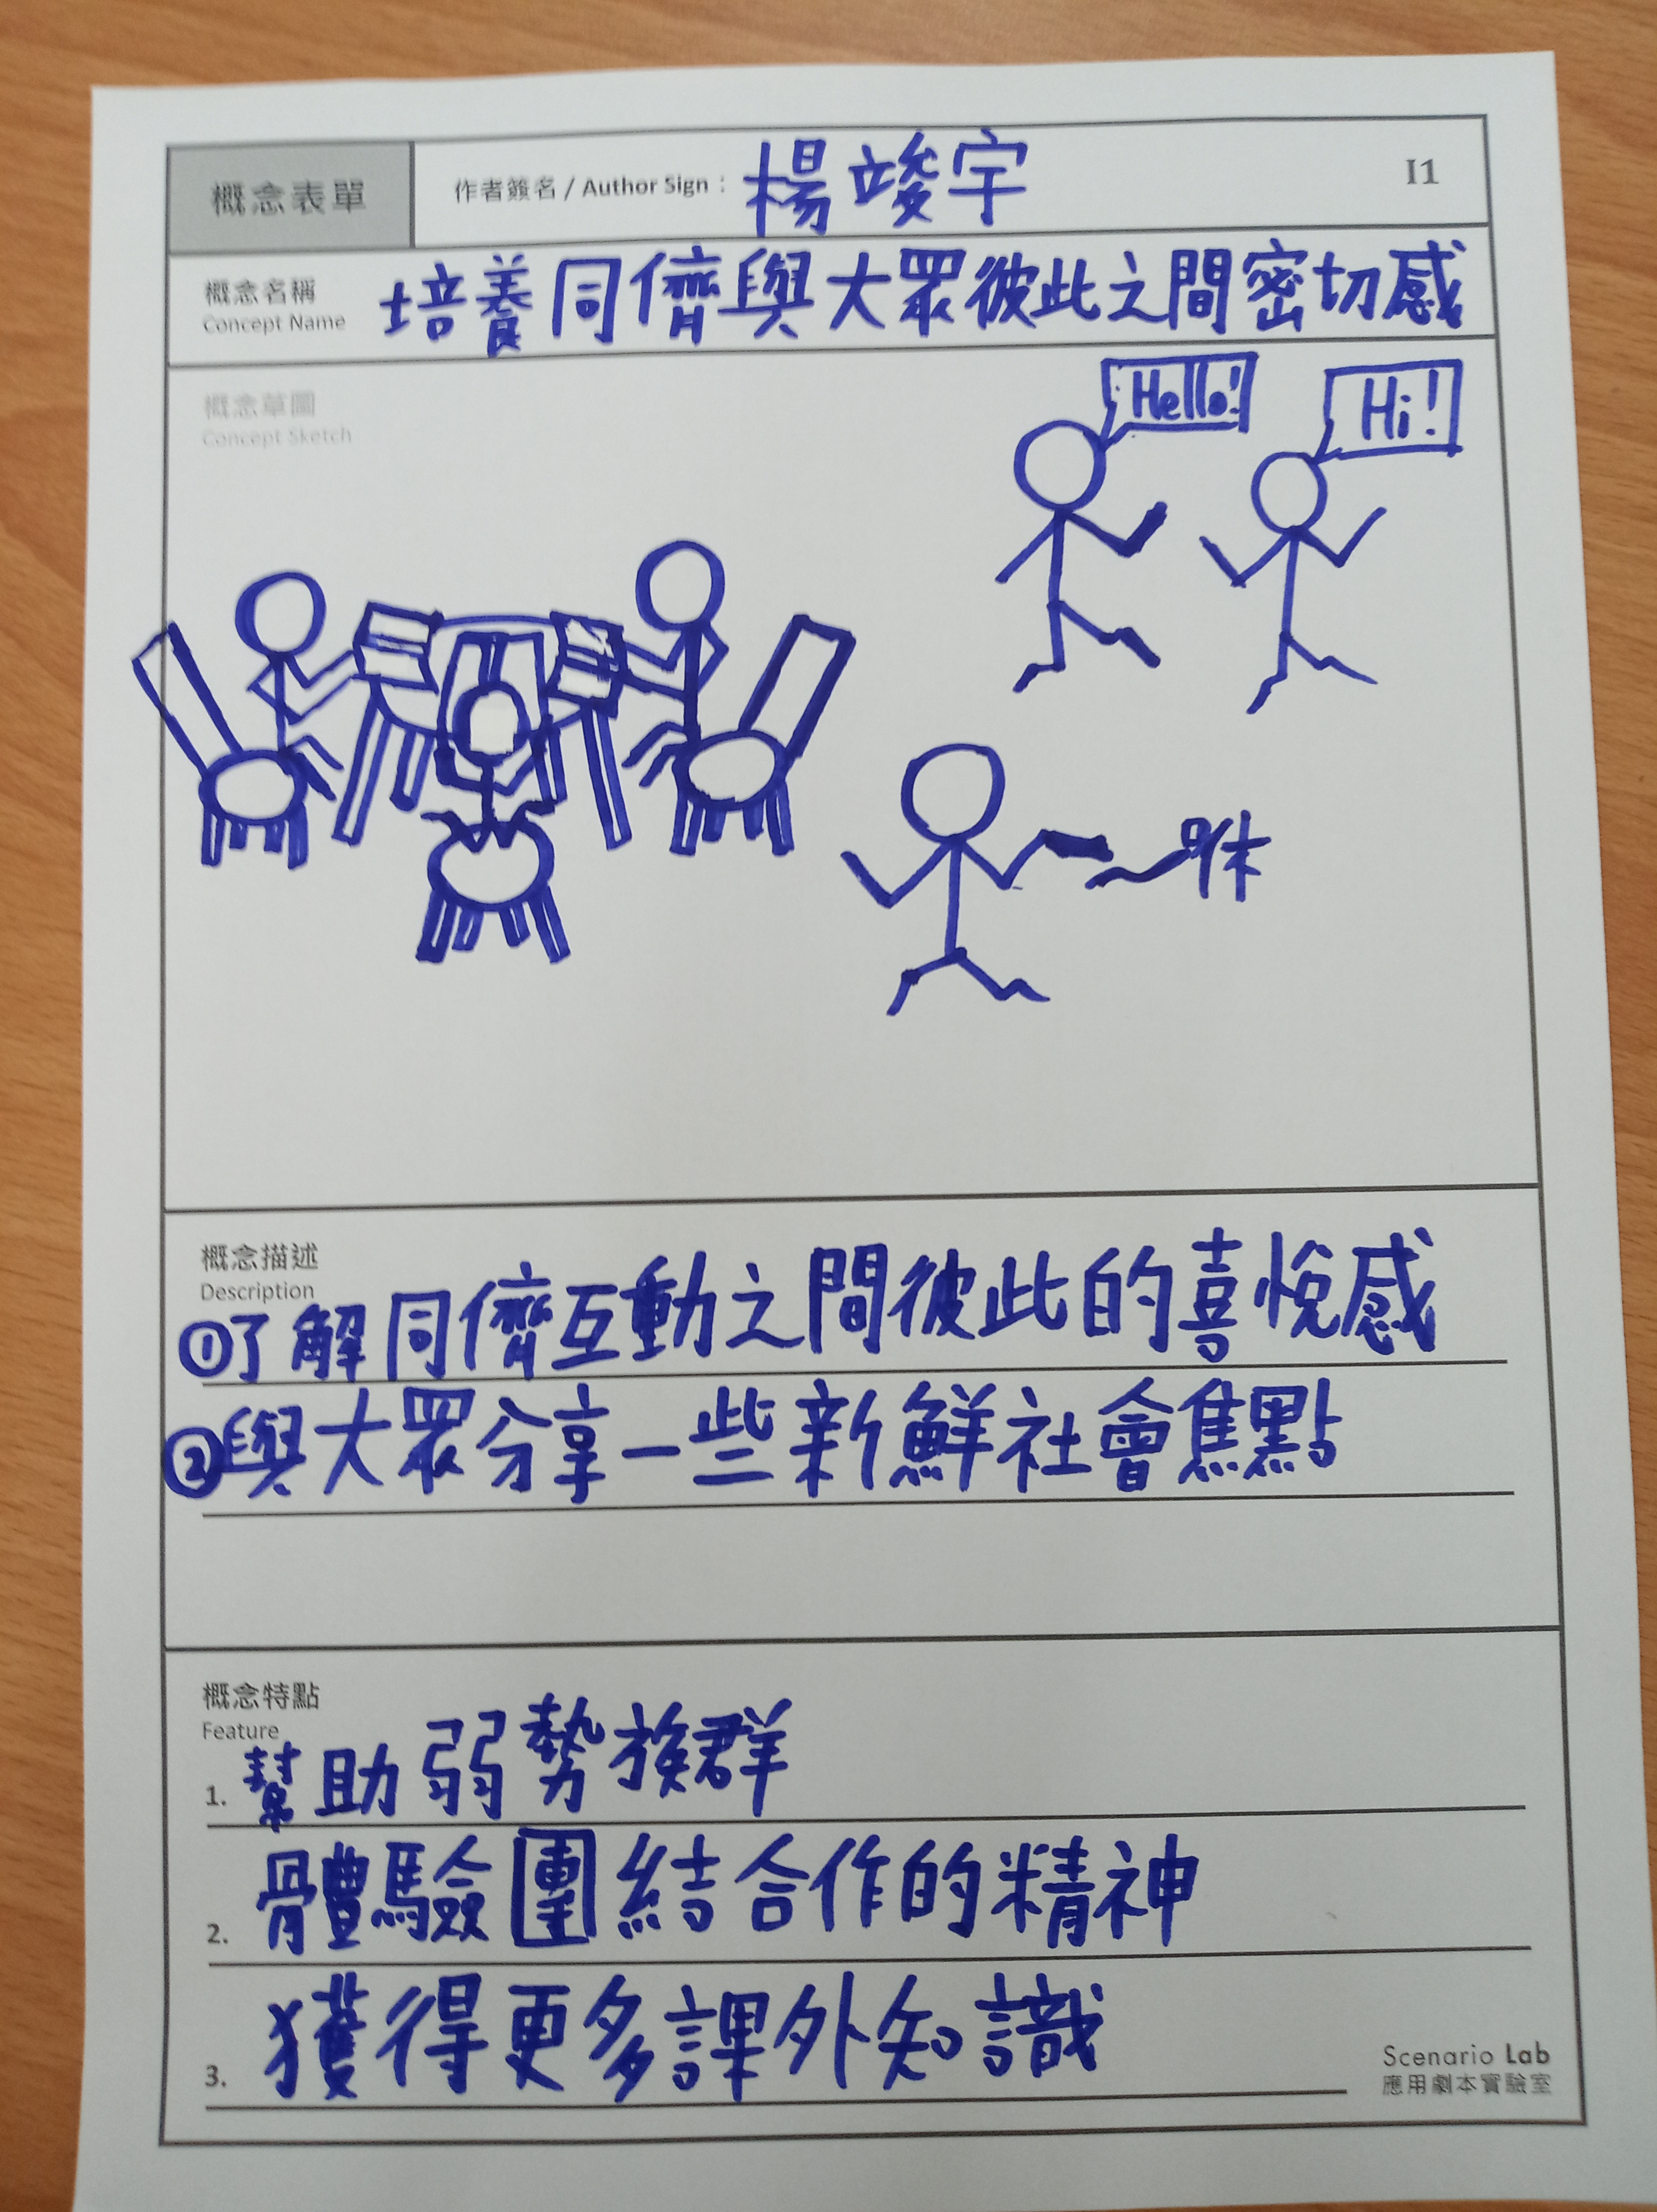 概念表單
作者簽名 / Author Sign : 楊竣宇
I1
概念名稱
Concept Name
培養同儕與大眾彼此之間密切感
概念草圖
Concept Sketch
Hello!
Hi!
咻
概念描述
Description
①了解同儕互動之間彼此的喜悅感
②與大眾分享一些新鮮社會焦點
概念特點
Feature
1. 幫助弱勢族群
2. 體驗團結合作的精神
3. 獲得更多課外知識
Scenario Lab
應用劇本實驗室